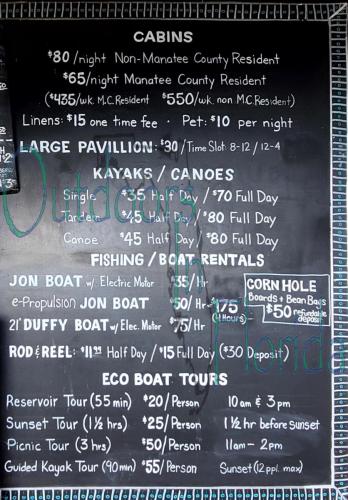 CABINS
$80/night Non-Manatee County Resident
$65/night Manatee County Resident
($435/wk. M.C. Resident $550/wk. non M.C. Resident)
Linens: $15 one time fee · Pet: $10 per night
LARGE PAVILLION: $90/Time Slot: 8-12/12-4
KAYAKS/CANOES
Single $35 Half Day/$70 Full Day
Tandem $45 Half Day/$80 Full Day
Canoe $45 Half Day/$80 Full Day
FISHING/BOAT RENTALS
JON BOAT w/ Electric Motor $35/Hr
e-Propulsion JON BOAT $50/Hr $175 (4 Hours)
21' DUFFY BOAT w/ Elec. Motor $75/Hr
CORN HOLE
Boards + Bean Bags
$50 refundable deposit
ROD & REEL: Half Day/$15 Full Day ($30 Deposit)
ECO BOAT TOURS
Reservoir Tour (55 min) $20/Person 10am & 3pm
Sunset Tour (1½ hrs) $25/Person 1½ hr before sunset
Picnic Tour (3 hrs) $50/Person 11am - 2pm
Guided Kayak Tour (90min) $55/Person Sunset (12 ppl. max)
Outdoors
Florida